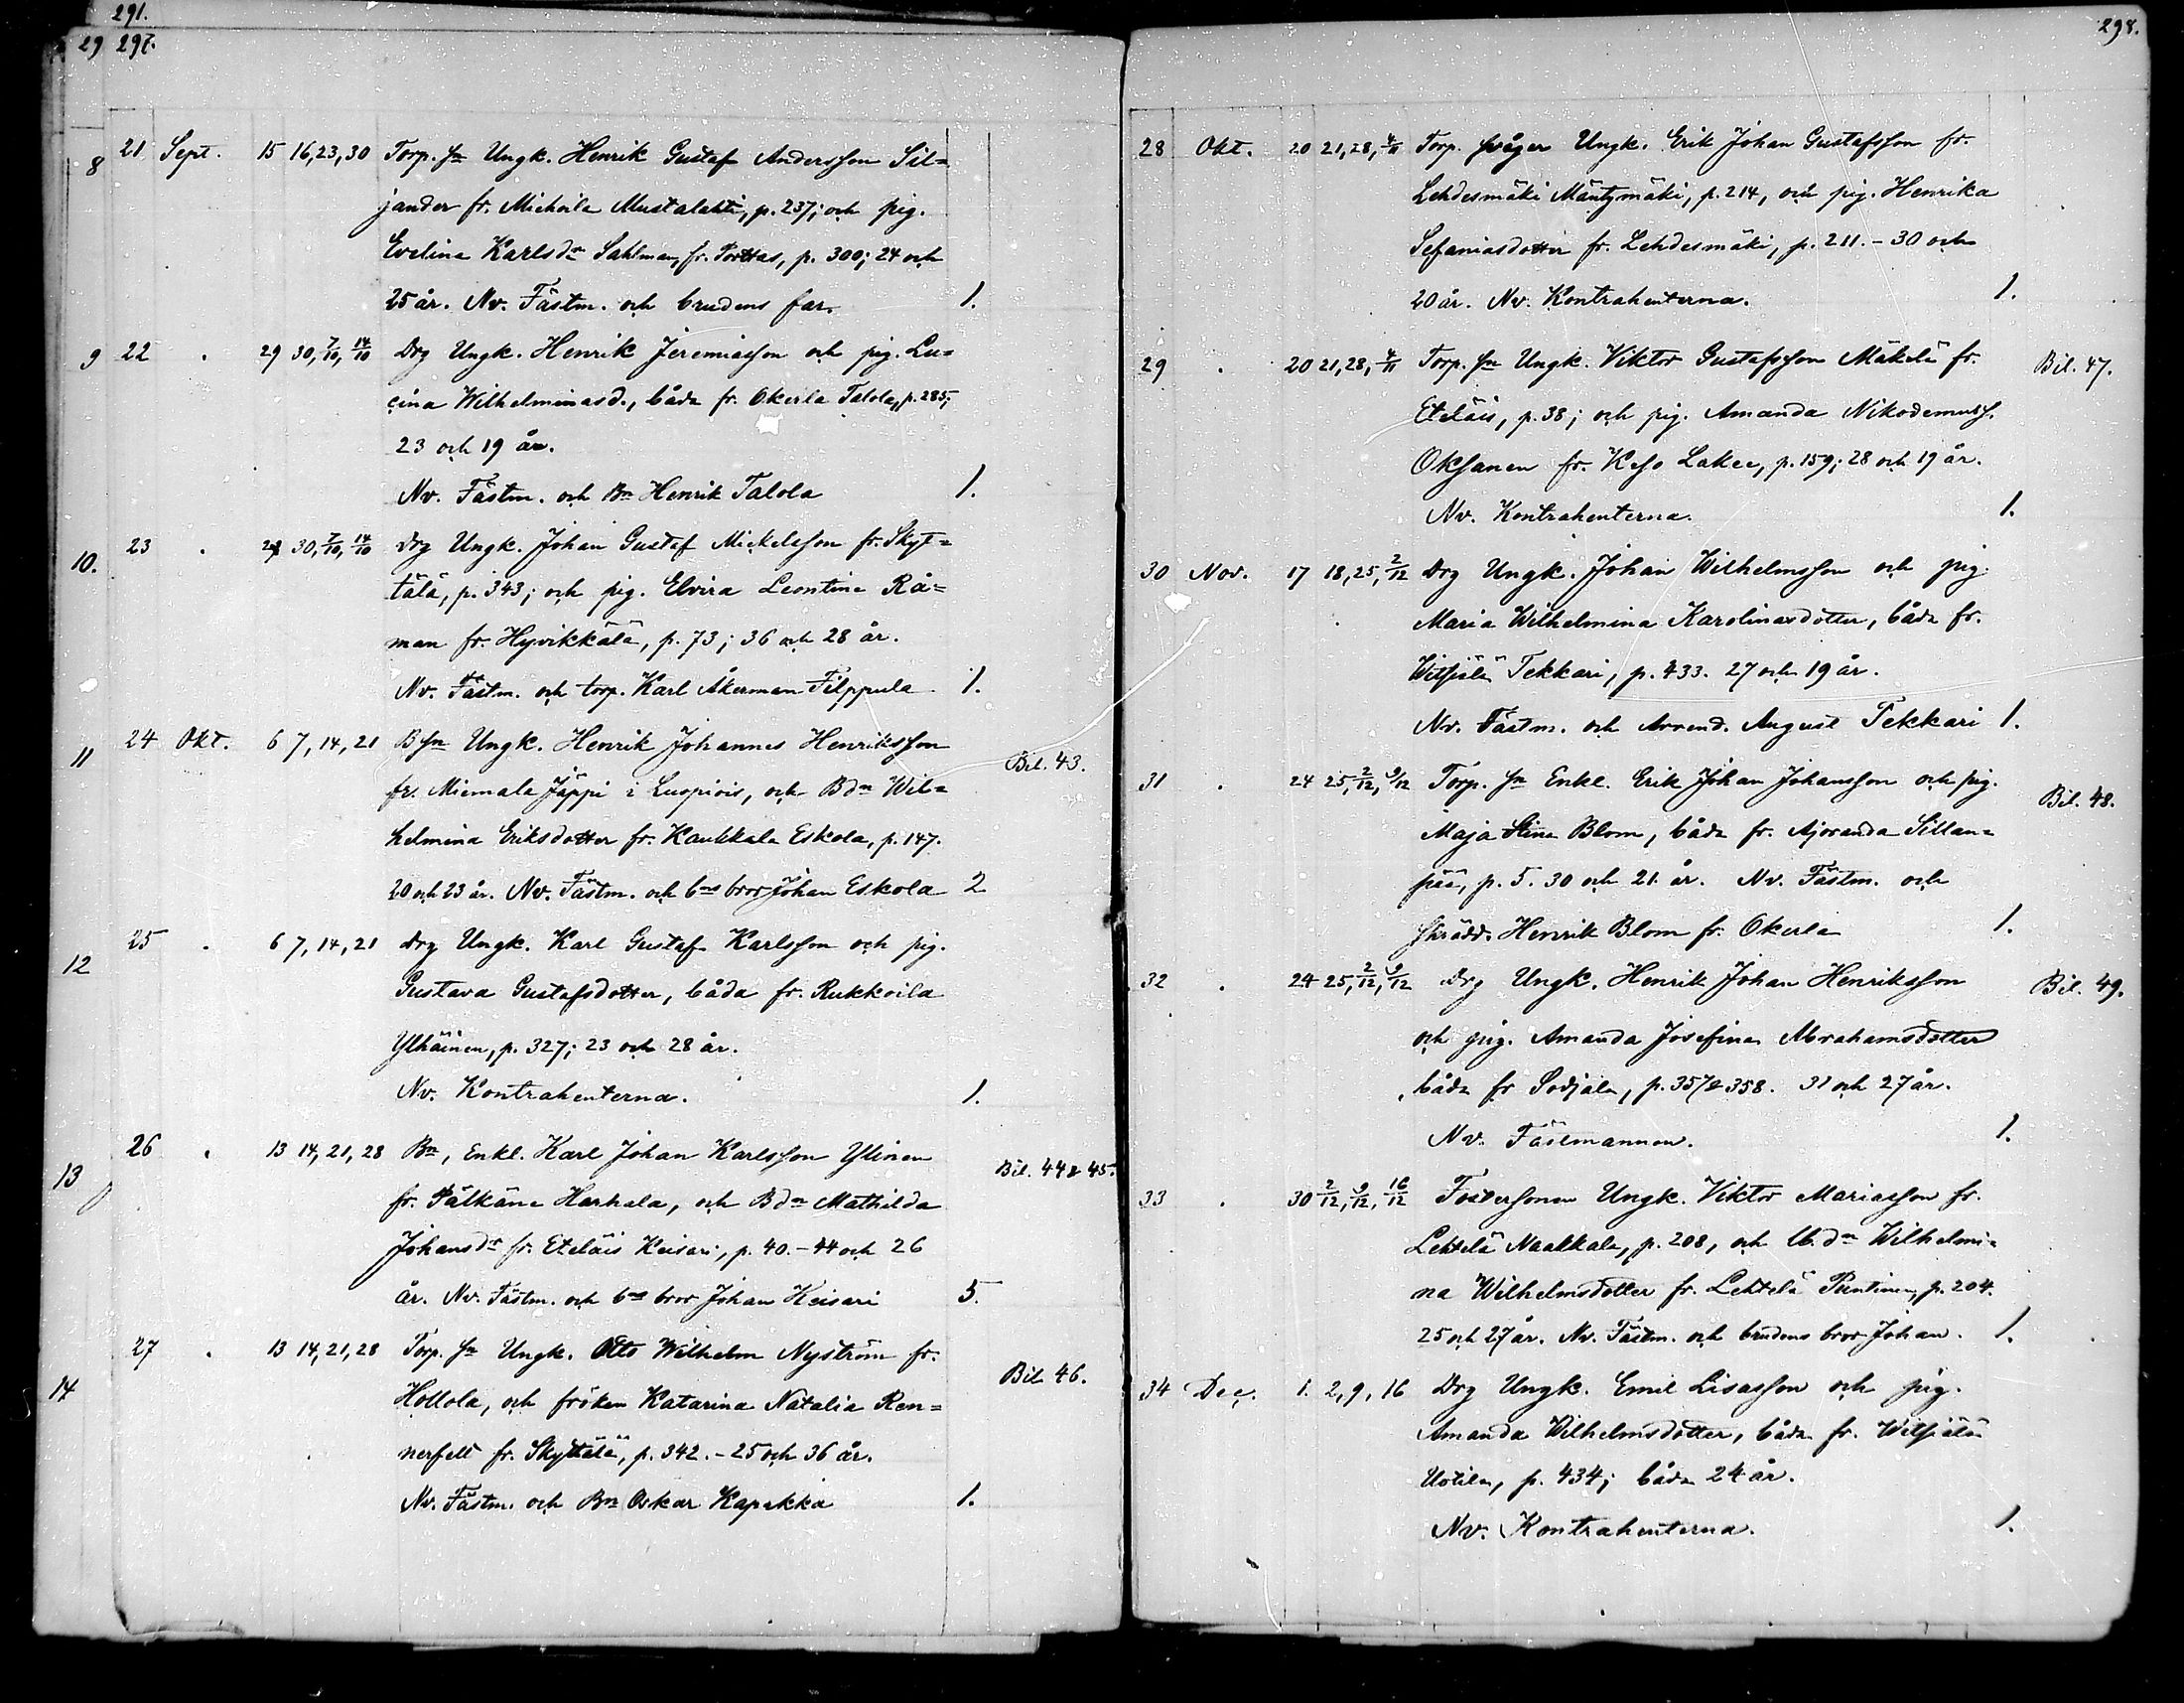 291.
29 297.
8 21 Sept. 15 16, 23, 30 Torp. sn Ungk. Henrik Gustaf Andersson Sil=
jander fr. Michoila Mustalahti, p. 237; och pig.
Evelina Karlsdr Sahlman, fr. Porttas, p. 300; 24 och
25 år. Nv. Fästm. och brudens far. 1.
9 22 . 29 30, 7/10, 14/10 Drg Ungk. Henrik Jeremiasson och pig. Lu=
cina Wilhelminasd., båda fr. Okerla Talola, p. 285;
23 och 19 år.
Nv. Fästm. och Bn Henrik Talola 1.
10. 23 . 29 30, 7/10, 14/10 Drg Ungk. Johan Gustaf Mickelsson fr. Skyt=
tälä, p. 343; och pig. Elvira Leontine Rå=
man fr. Hyvikkälä, p. 73; 36 och 28 år.
Nv. Fästm. och torp. Karl Åkerman Filppula 1.
11 24 Okt. 6 7, 14, 21 B sn Ungk. Henrik Johannes Henriksson
fr. Miemala Jäppi i Luopiois, och Bdn Wil=
Bil. 43.
helmina Eriksdotter fr. Kaukkala Eskola, p. 147.
20 och 23 år. Nv. Fästm. och bns bror Johan Eskola 2
12 25 . 6 7, 14, 21 Drg Ungk. Karl Gustaf Karlsson och pig.
Gustava Gustafsdotter, båda fr. Rukkoila
Ylhäinen, p. 327; 23 och 28 år.
Nv. Kontrahenterna. 1.
13 26 . 13 14, 21, 28 Bn, Enkl. Karl Johan Karlsson Ylinen
Bil. 44 & 45.
fr. Pälkäne Harhala, och Bdn Mathilda
Johansdr fr. Eteläis Keisari, p. 40. - 44 och 26
år. Nv. Fästm. och bns bror Johan Keisari 5.
14 27 . 13 14, 21, 28 Torp. sn Ungk. Otto Wilhelm Nyström fr.
Bil. 46.
Hollola, och fröken Katarina Natalia Ren=
nerfelt fr. Skyttälä, p. 342. - 25 och 36 år.
Nv. Fästm. och Bn Oskar Kapakka 1.
298.
28 Okt. 20 21, 28, 4/11 Torp. svåger Ungk. Erik Johan Gustafsson fr.
Lehdesmäki Mäntymäki, p. 214, och pig. Henrika
Sefaniasdotter fr. Lehdesmäki, p. 211. - 30 och
20 år. Nv. Kontrahenterna. 1.
29 . 20 21, 28, 4/11 Torp. sn Ungk. Viktor Gustafsson Mäkelä fr.
Bil. 47.
Eteläis, p. 38; och pig. Amanda Nikodemuss.
Oksanen fr. Keso Lakee, p. 159; 28 och 19 år.
Nv. Kontrahenterna. 1.
30 Nov. 17 18, 25, 2/12 Drg Ungk. Johan Wilhelmsson och pig.
Maria Wilhelmina Karolinasdotter, båda fr.
Witsiälä Tekkari, p. 433. 27 och 19 år.
Nv. Fästm. och Arrend. August Tekkari 1.
31 . 24 25, 2/12, 9/12 Torp. sn Enkl. Erik Johan Johansson och pig.
Bil. 48.
Maja Stina Blom, båda fr. Ajoranda Sillan=
pää, p. 5. 30 och 21 år. Nv. Fästm. och
skrädd. Henrik Blom fr. Okerla 1.
32 . 24 25, 2/12, 9/12 Drg Ungk. Henrik Johan Henriksson
Bil. 49.
och pig. Amanda Josefina Abrahamsdotter
båda fr Sodjala, p. 357 & 358. 31 och 27 år.
Nv. Fästmannen. 1.
33 . 30 2/12, 9/12, 16/12 Fostersonen Ungk. Viktor Mariasson fr.
Lehtelä Naakkala, p. 208, och Ub. dn Wilhelmi=
na Wilhelmsdotter fr. Lehtelä Puntinen, p. 204.
25 och 27 år. Nv. Fästm. och brudens bror Johan. 1.
34 Dec. 1. 2, 9, 16 Drg Ungk. Emil Lisasson och pig.
Amanda Wilhelmsdotter, båda fr. Witsiälä
Uotila, p. 434; båda 24 år.
Nv. Kontrahenterna. 1.